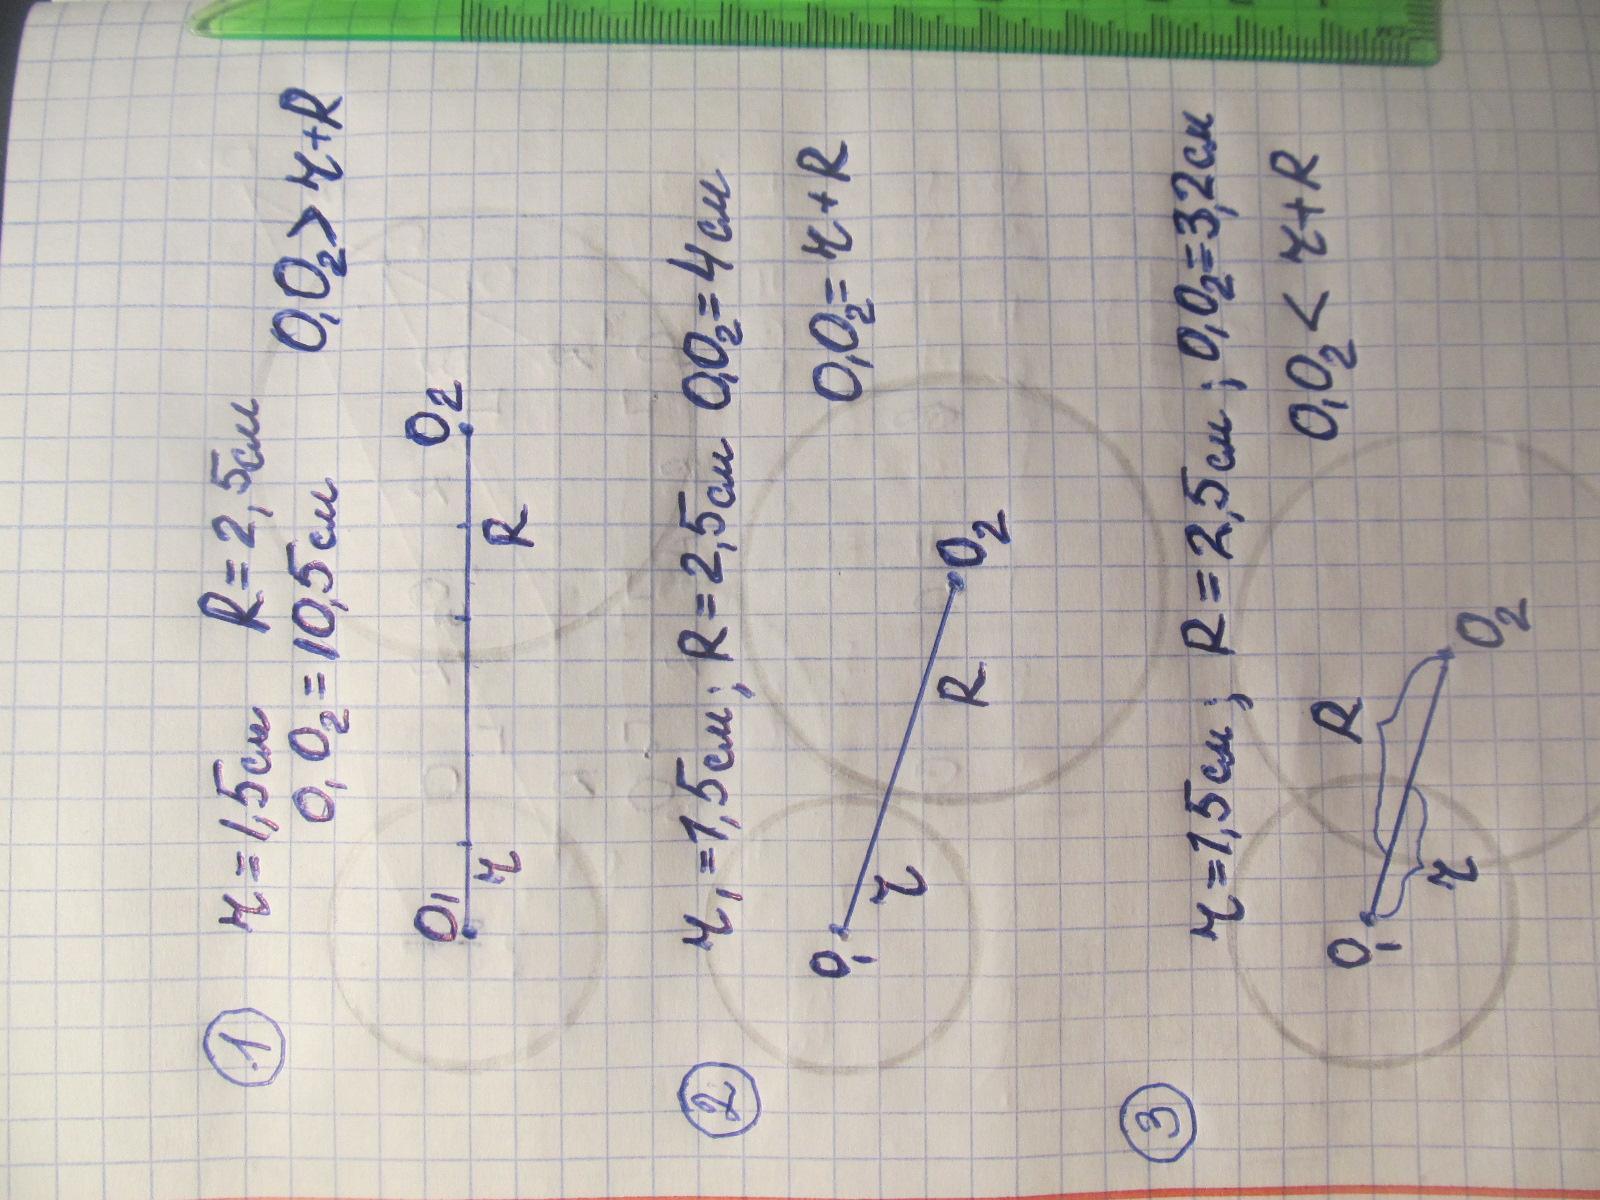 1
r = 1,5см R = 2,5см
O₁O₂ = 10,5см O₁O₂ > r + R
O₁ O₂
r R
2
r₁ = 1,5см; R = 2,5см O₁O₂ = 4см
O₁O₂ = r + R
O₁ r R O₂
3
r = 1,5см; R = 2,5см; O₁O₂ = 3,2см
O₁O₂ < r + R
R
O₁ r O₂